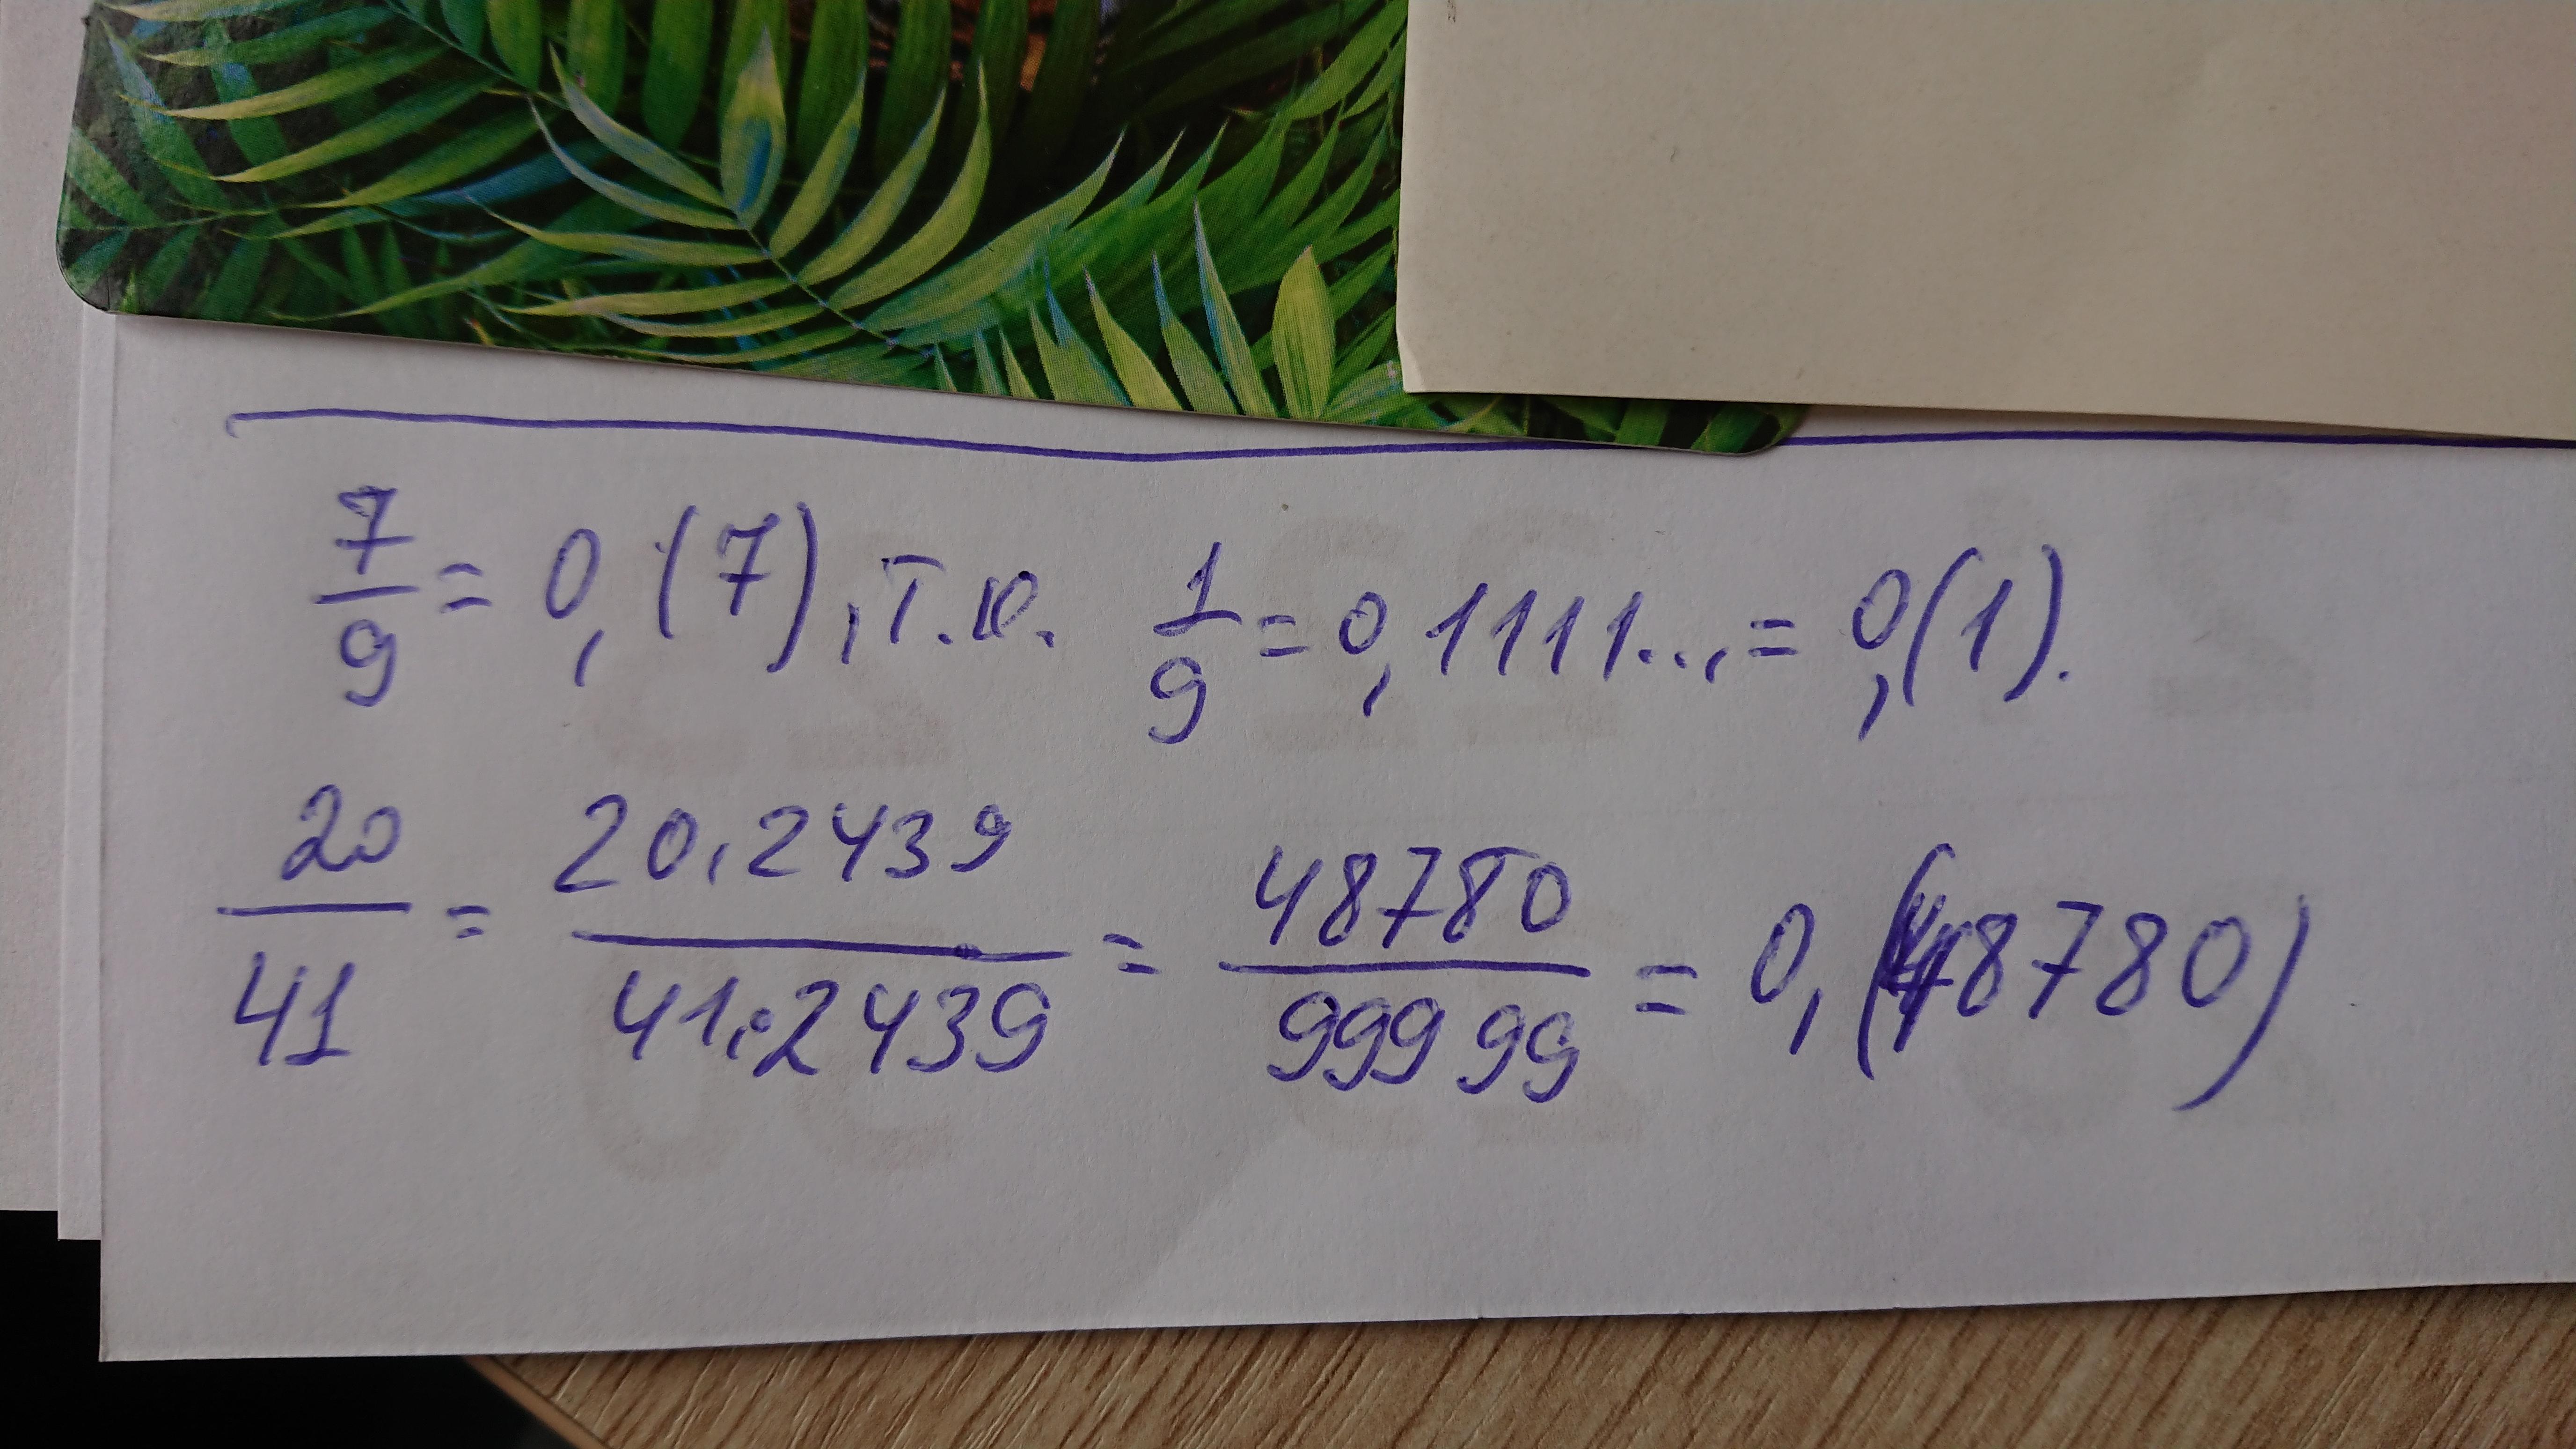 7/9 = 0,(7), т.к. 1/9 = 0,1111... = 0,(1).
20/41 = 20·2439/41·2439 = 48780/99999 = 0,(48780)